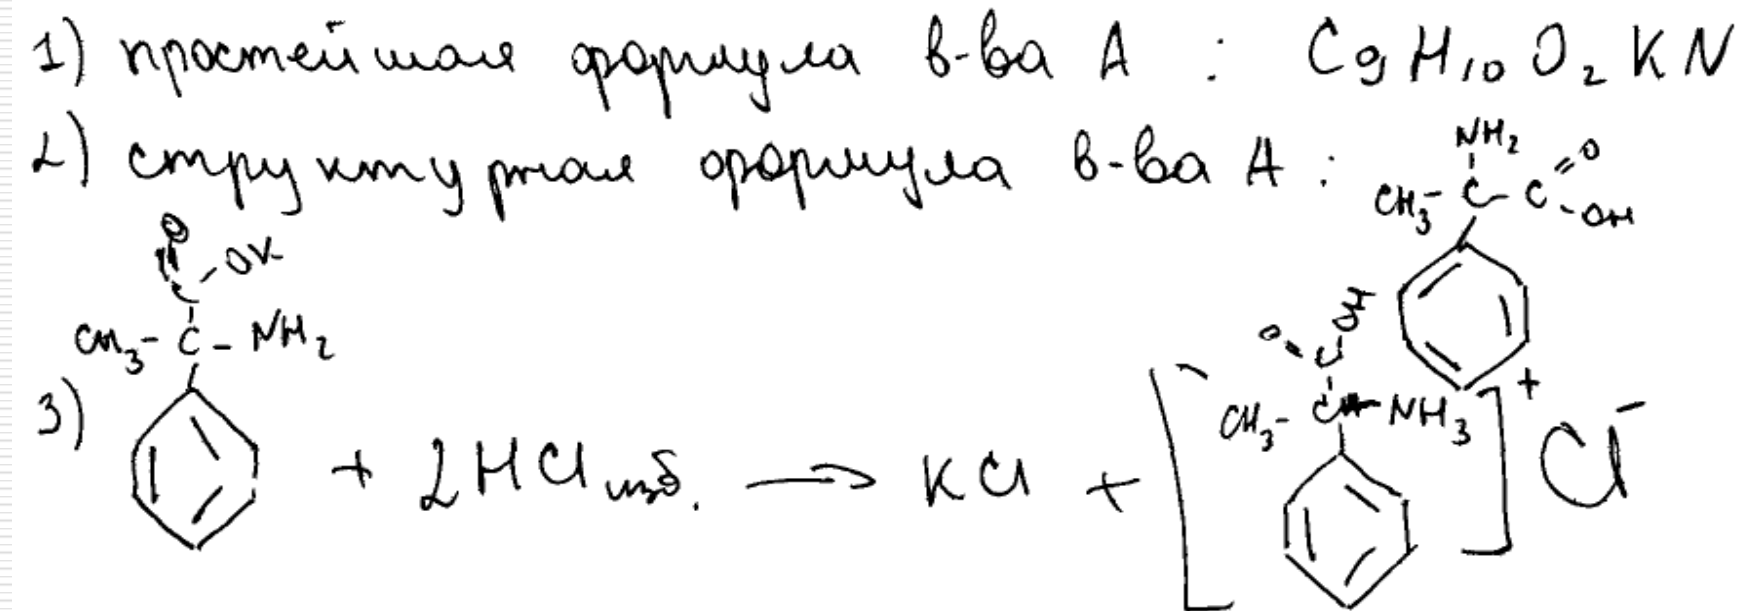 1) простейшая формула в-ва А : C9H10O2KN
2) структурная формула в-ва А :
NH2
CH3 - C - C = O - OH
O OK
CH3 - C - NH2
3) + 2HCl изб. → KCl + [ CH3 - C - NH3 ]+ Cl-
O C OH